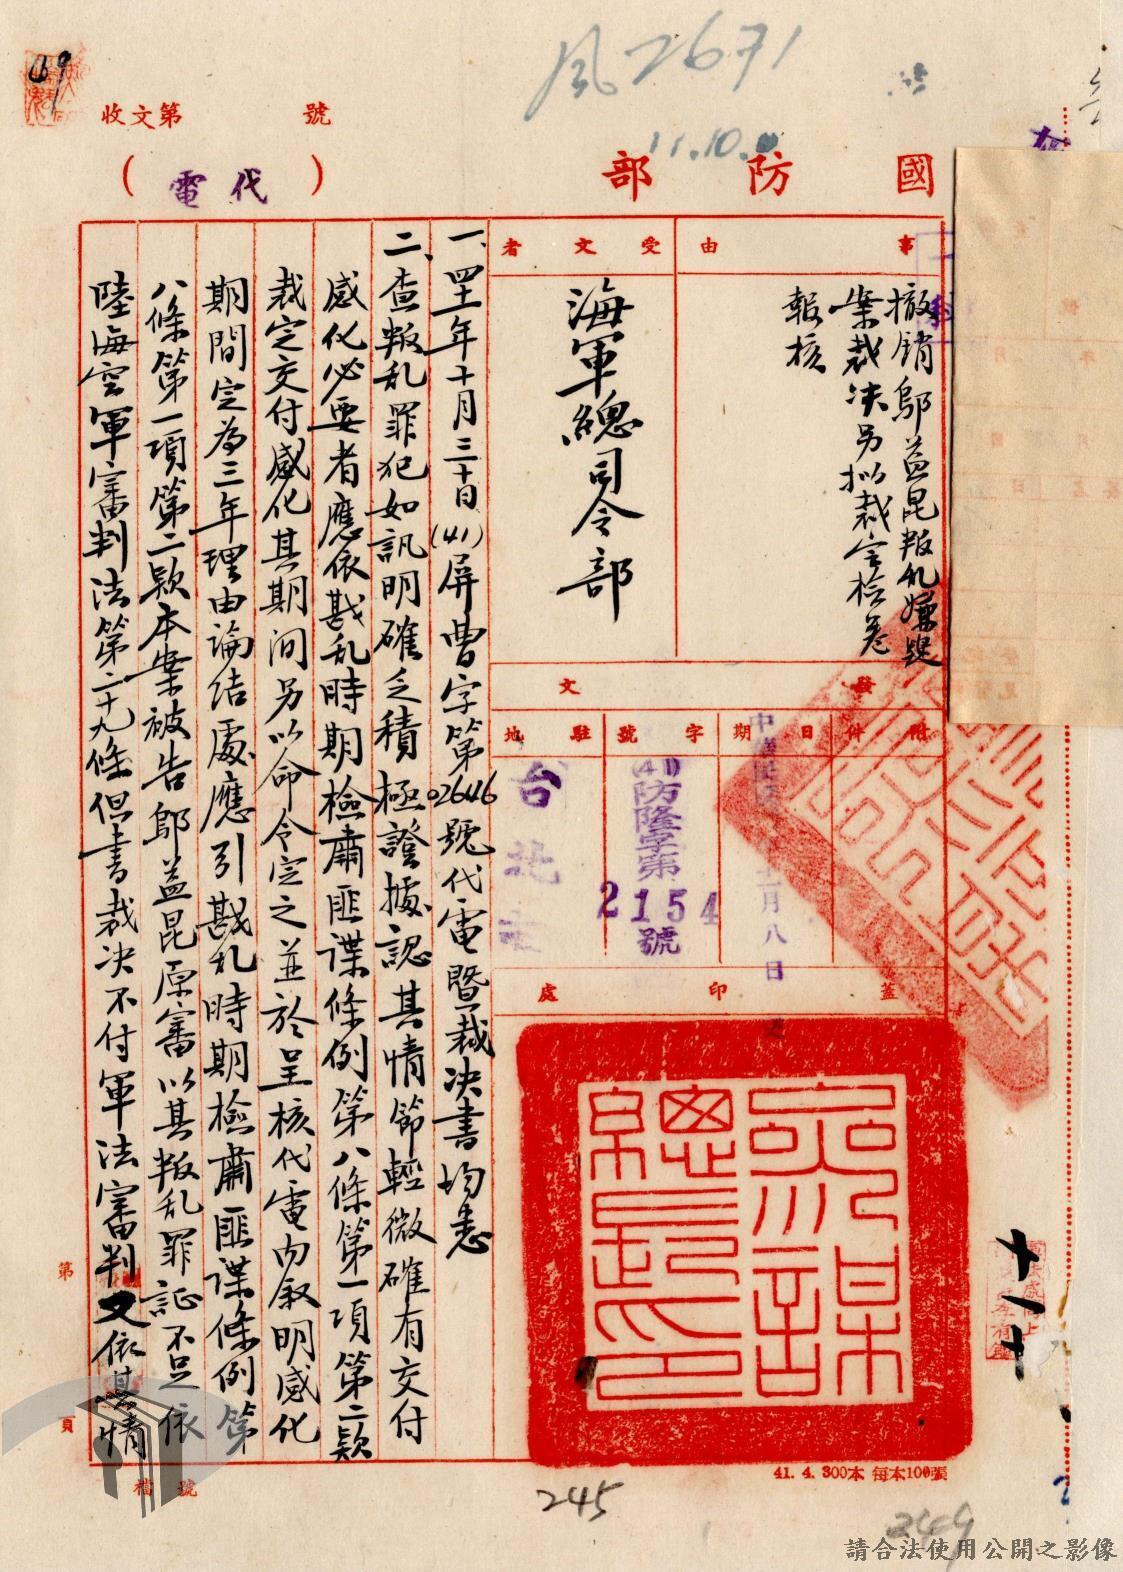 風2671
11.10.
169
收文第　　號
國防部
（代電）
事由
撤銷鄔益昆叛乱嫌疑
業裁决另拟裁定檢卷
報核
受文者
海軍總司令部
發文
附件
日期
中華民國　十一月八日
字號
(41)防隆字第
2154
號
駐地
台北市
蓋印處
參謀總長印
一、四十一年十月三十日(41)屏曹字第02646號代電暨裁决書均悉
二、查叛乱罪犯如訊明確乏積極證據認其情節輕微確有交付
感化必要者應依戡乱時期檢肅匪諜條例第八條第一項第二款
裁定交付感化其期间另以命令定之並於呈核代電内叙明感化
期間定為三年理由論结處應引戡乱時期檢肅匪諜條例第
八條第一項第二款本案被告鄔益昆原審以其叛乱罪証不足依
陸海空軍審判法第二十九條但書裁决不付軍法審判又依其情
第
頁
檔號
41. 4. 300本 每本100張
十一 十
245
249
請合法使用公開之影像